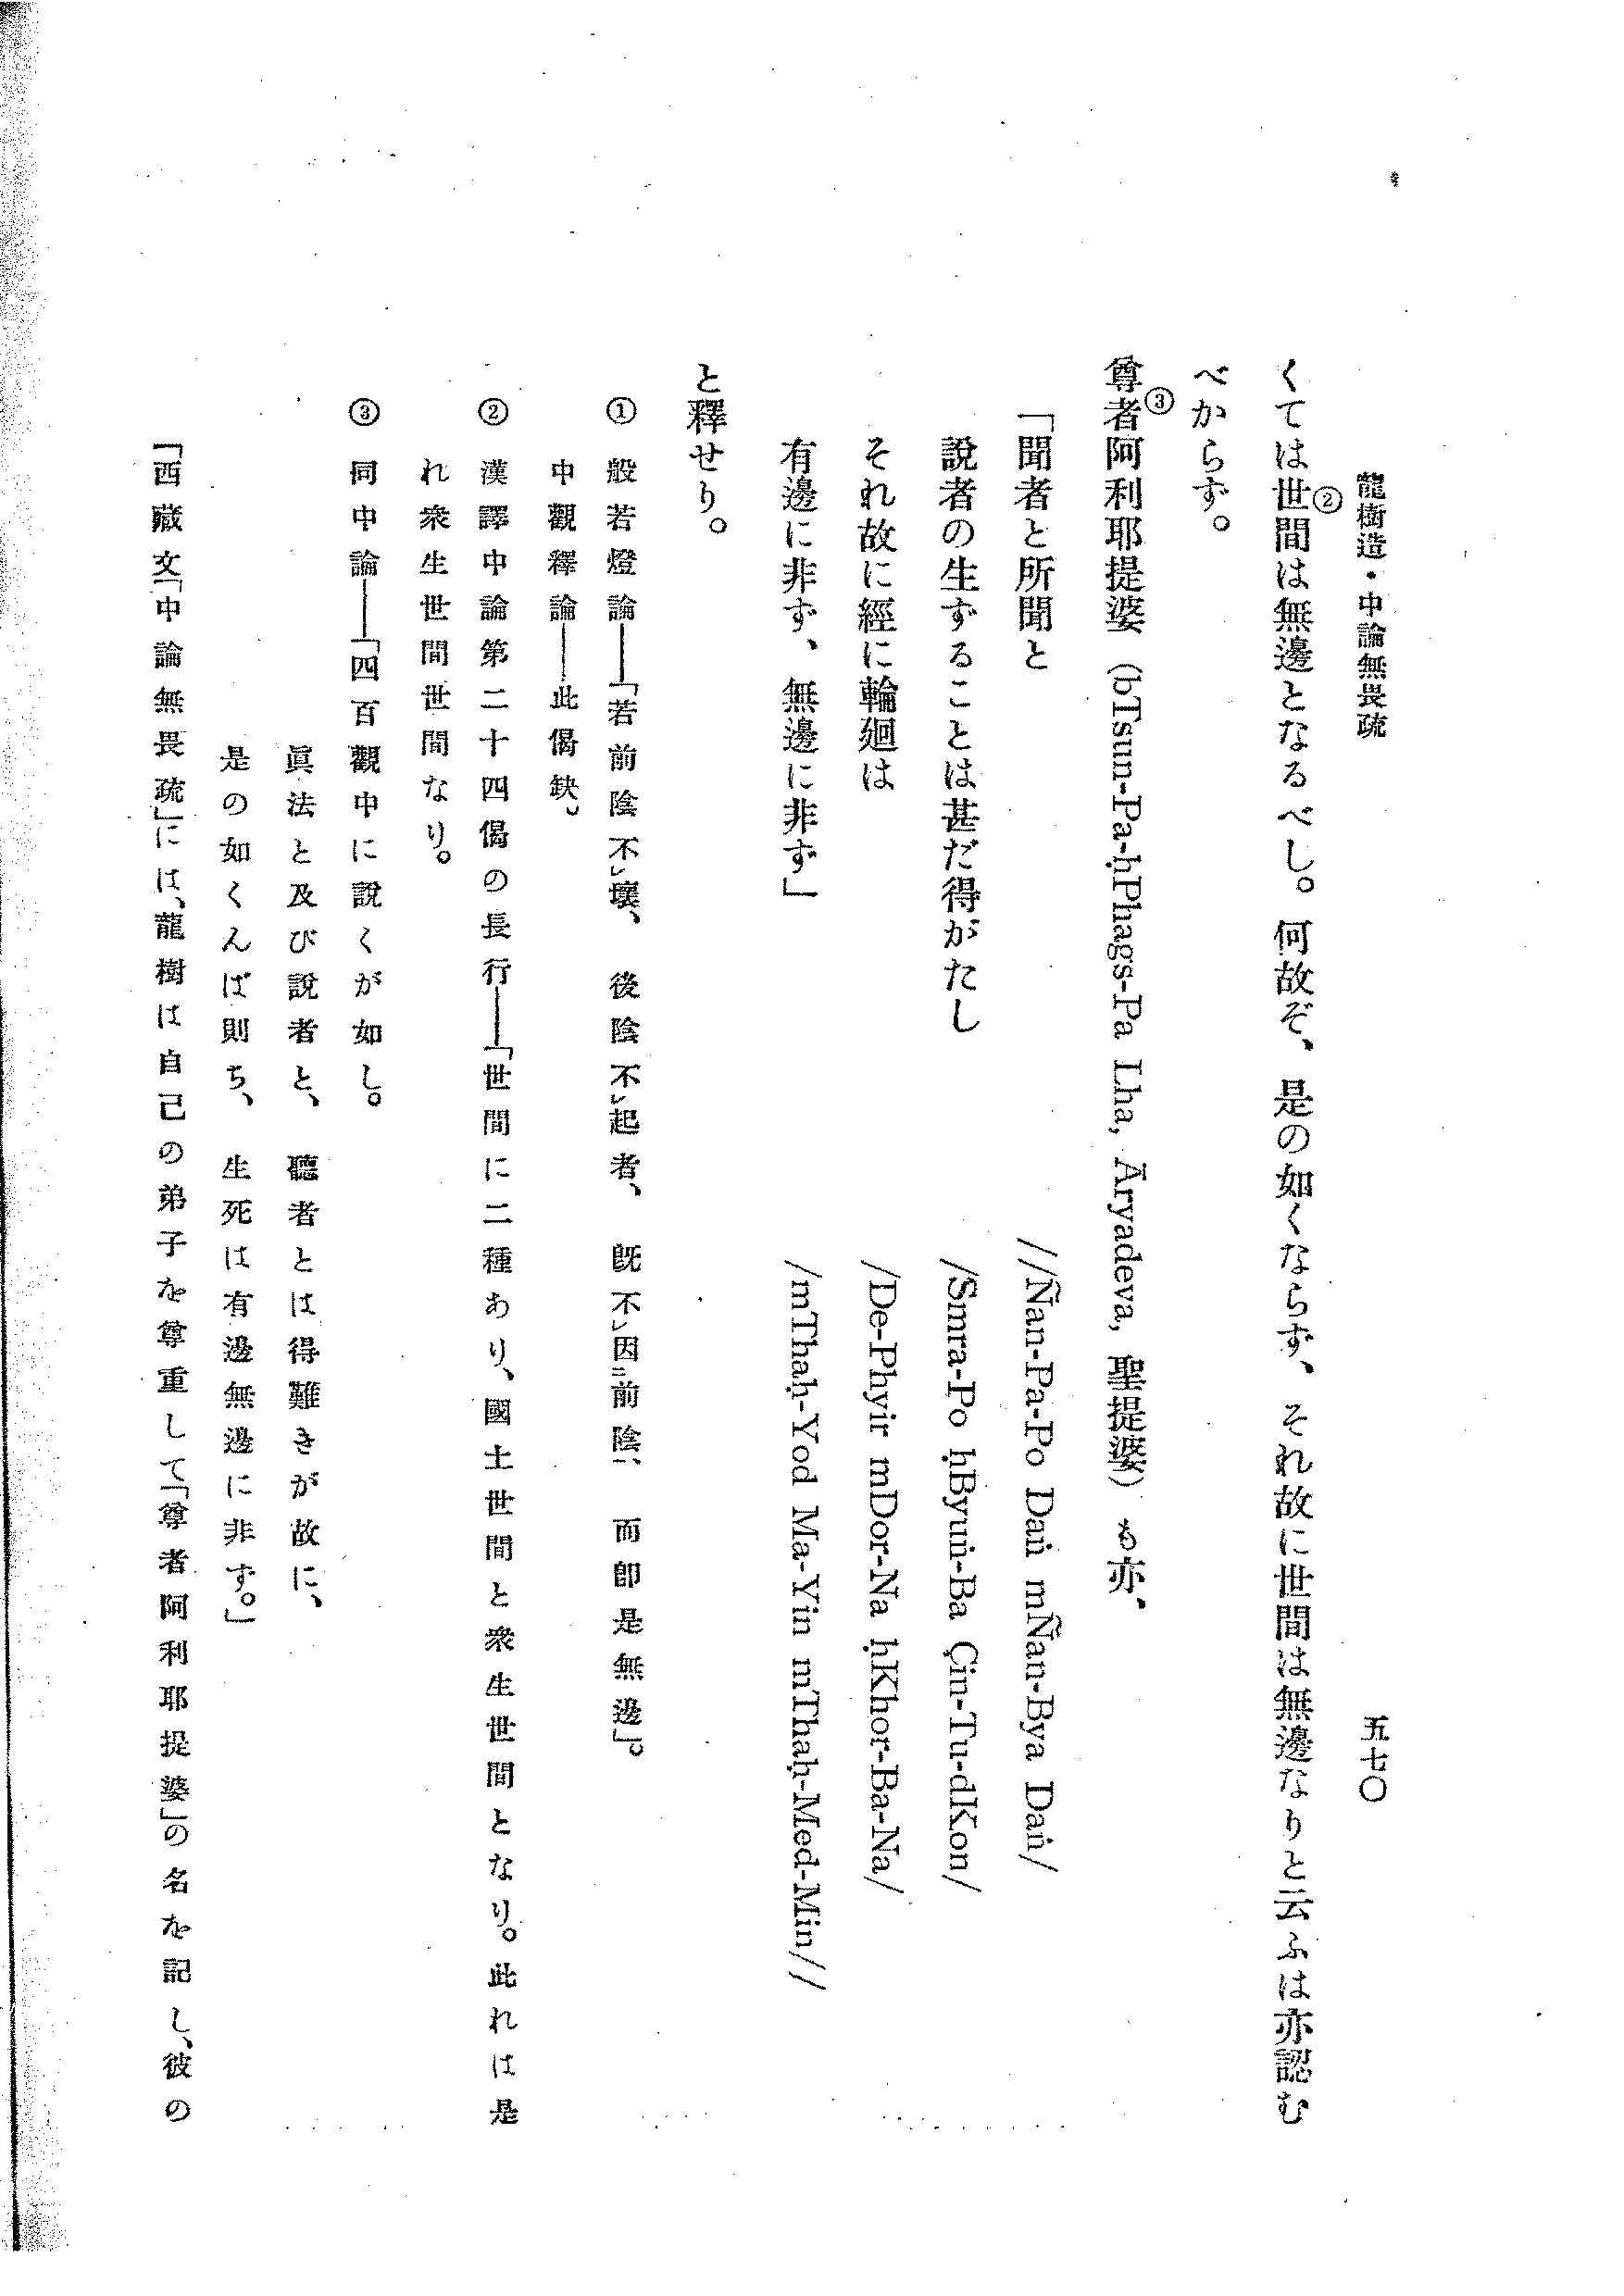 龍樹造・中論無畏疏
五七〇
くては世間②は無邊となるべし。何故ぞ、是の如くならず、それ故に世間は無邊なりと云ふは亦認む
べからず。
尊者③阿利耶提婆（bTsun-Pa-ḥPhags-Pa Lha, Āryadeva, 聖提婆）も亦、
「聞者と所聞と //Ñan-Pa-Po Daṅ mÑan-Bya Daṅ/
說者の生ずることは甚だ得がたし /Smra-Po ḥByuṅ-Ba Çin-Tu-dKon/
それ故に經に輪廻は /De-Phyir mDor-Na ḥKhor-Ba-Na/
有邊に非ず、無邊に非ず」 /mThaḥ-Yod Ma-Yin mThaḥ-Med-Min//
と釋せり。
① 般若燈論――「若前陰不レ壞、後陰不レ起者、既不レ因二前陰一、而卽是無邊」。
中觀釋論――此偈缺。
② 漢譯中論第二十四偈の長行――「世間に二種あり、國土世間と衆生世間となり。此れは是
れ衆生世間世間なり。
③ 同中論――「四百觀中に說くが如し。
眞法と及び說者と、聽者とは得難きが故に、
是の如くんば則ち、生死は有邊無邊に非ず。」
「西藏文「中論無畏疏」には、龍樹は自己の弟子を尊重して「尊者阿利耶提婆」の名を記し、彼の